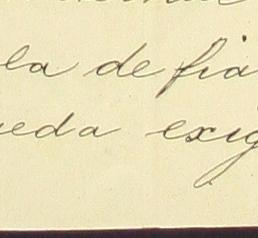 la de fia
ueda exig